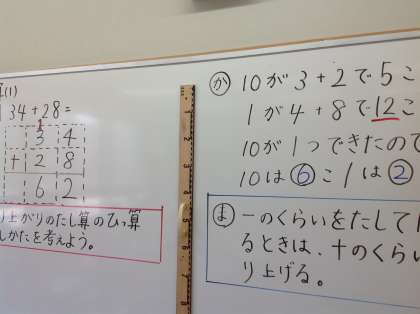 (1)
34+28=
1
3 4
+ 2 8
6 2
り上がりのたし算のひっ算
しかたを考えよう。
か 10が3+2で5こ
1が4+8で12こ
10が1つできたので
10は⑥こ1は②
ま 一のくらいをたして1
るときは、十のくらい
り上げる。